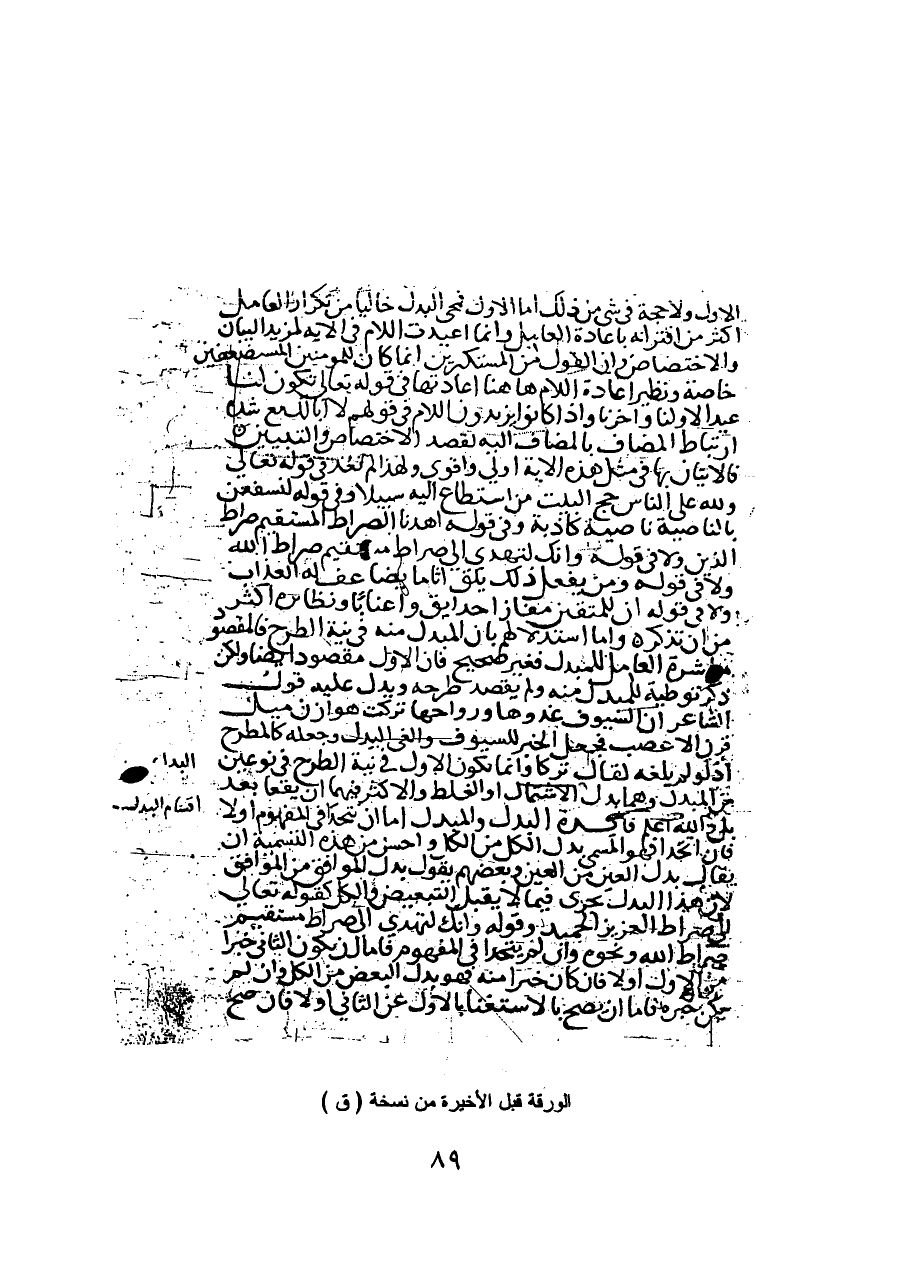 الاول ولا حجة في شي من ذلك اما الاول فمجي البدل خاليا من تكرار العامل
اكثر من اقترانه باعادة العامل وانما اعيدت اللام في الايه لمزيد البيان
والاختصاص وان القول من المستكبرين انما كان للمومنين المستضعفين
خاصة ونظير اعادة اللام ها هنا اعادتها في قوله تعالى تكون لنا
عيدا لاولنا واخرنا واذا كانوا يزيدون اللام في قولهم لا ابا لك مع شدة
ارتباط المضاف بالمضاف اليه لقصد الاختصاص والتبيين
فالاتيان بها في مثل هذه الاية اولى واقوى ولهذا لم تعد في قوله تعالى
ولله على الناس حج البيت من استطاع اليه سبيلا وفي قوله لنسفعن
بالناصية ناصية كاذبة وفي قوله اهدنا الصراط المستقيم صراط
الذين ولا في قوله وانك لتهدي الى صراط مستقيم صراط الله
ولا في قوله ومن يفعل ذلك يلق اثاما يضاعف له العذاب
ولا في قوله ان للمتقين مفازا حدايق واعنابا ونظايره اكثر
من ان تذكره واما استدلالهم بان المبدل منه في نية الطرح فالمقصود
مباشرة العامل للمبدل فغير صحيح فان الاول مقصود ايضا ولكن
ذكر توطية للمبدل منه ولم يقصد طرحه ويدل عليه قول
الشاعر ان السيوف غدوها ورواحها تركت هوازن مثل
قرن الاعضب فجعل الخبر للسيوف والغى البدل وجعله كالمطرح
اذ لو لم يلغه لقال تركا وانما يكون الاول في نية الطرح في نوعين
من البدل وهما بدل الاشتمال او الغلط والاكثر فيهما ان يقعا بعد
بل والله اعلم فايدة البدل والمبدل اما ان يتحدا في المفهوم اولا
فان اتحدا فهو المسمى بدل الكل من الكل واحسن من هذه التسمية ان
يقال بدل العين من العين وبعضهم يقول بدل الموافق من الموافق
لان هذا البدل يجري فيما لا يقبل التبعيض والكل كقوله تعالى
الى صراط العزيز الحميد وقوله وانك لتهدي الى صراط مستقيم
صراط الله ونحوه وان لم يتحدا في المفهوم فاما ان يكون الثاني خبرا
من الاول اولا فان كان خبرا منه فهو بدل البعض من الكل وان لم
يكن خبره فاما ان يصح بالاستغنا بالاول عن الثاني اولا فان صح
البدا
اقسام البدل
الورقة قبل الأخيرة من نسخة ( ق )
٨٩